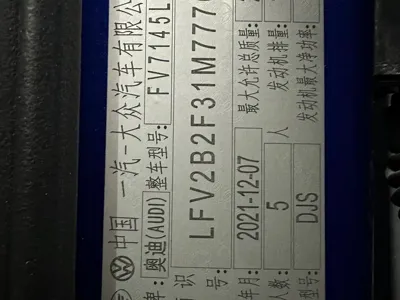 中国 一汽-大众汽车有限公
牌: 奥迪(AUDI) 整车型号: FV7145L
识 号: LFV2B2F31M777
年月: 2021-12-07 最大允许总质量:
人数: 5 人 发动机排量:
型号: DJS 发动机最大净功率: